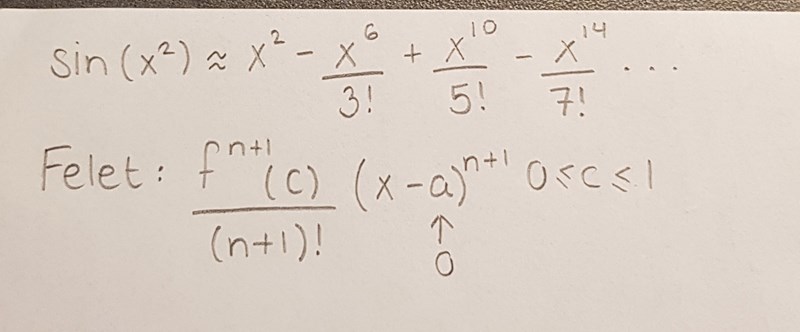 sin(x²) ≈ x² - x⁶/3! + x¹⁰/5! - x¹⁴/7! ...
Felet: fⁿ⁺¹(c)/(n+1)! (x-a)ⁿ⁺¹ 0≤c≤1
↑
0